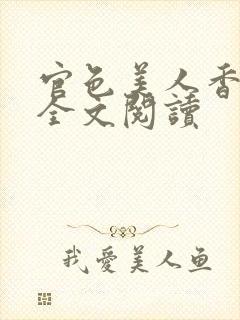 官色美人香
全文閱讀
我愛美人鱼